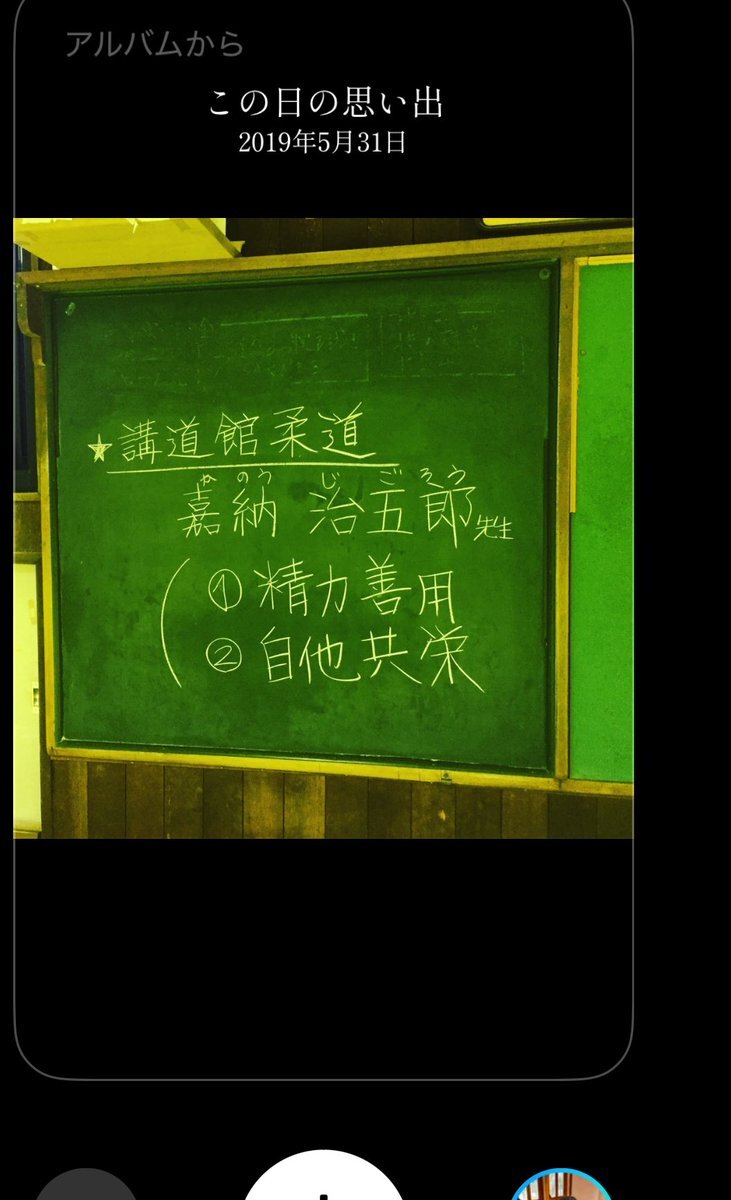 アルバムから
この日の思い出
2019年5月31日
★講道館柔道
かのう じごろう
嘉納 治五郎先生
①精力善用
②自他共栄